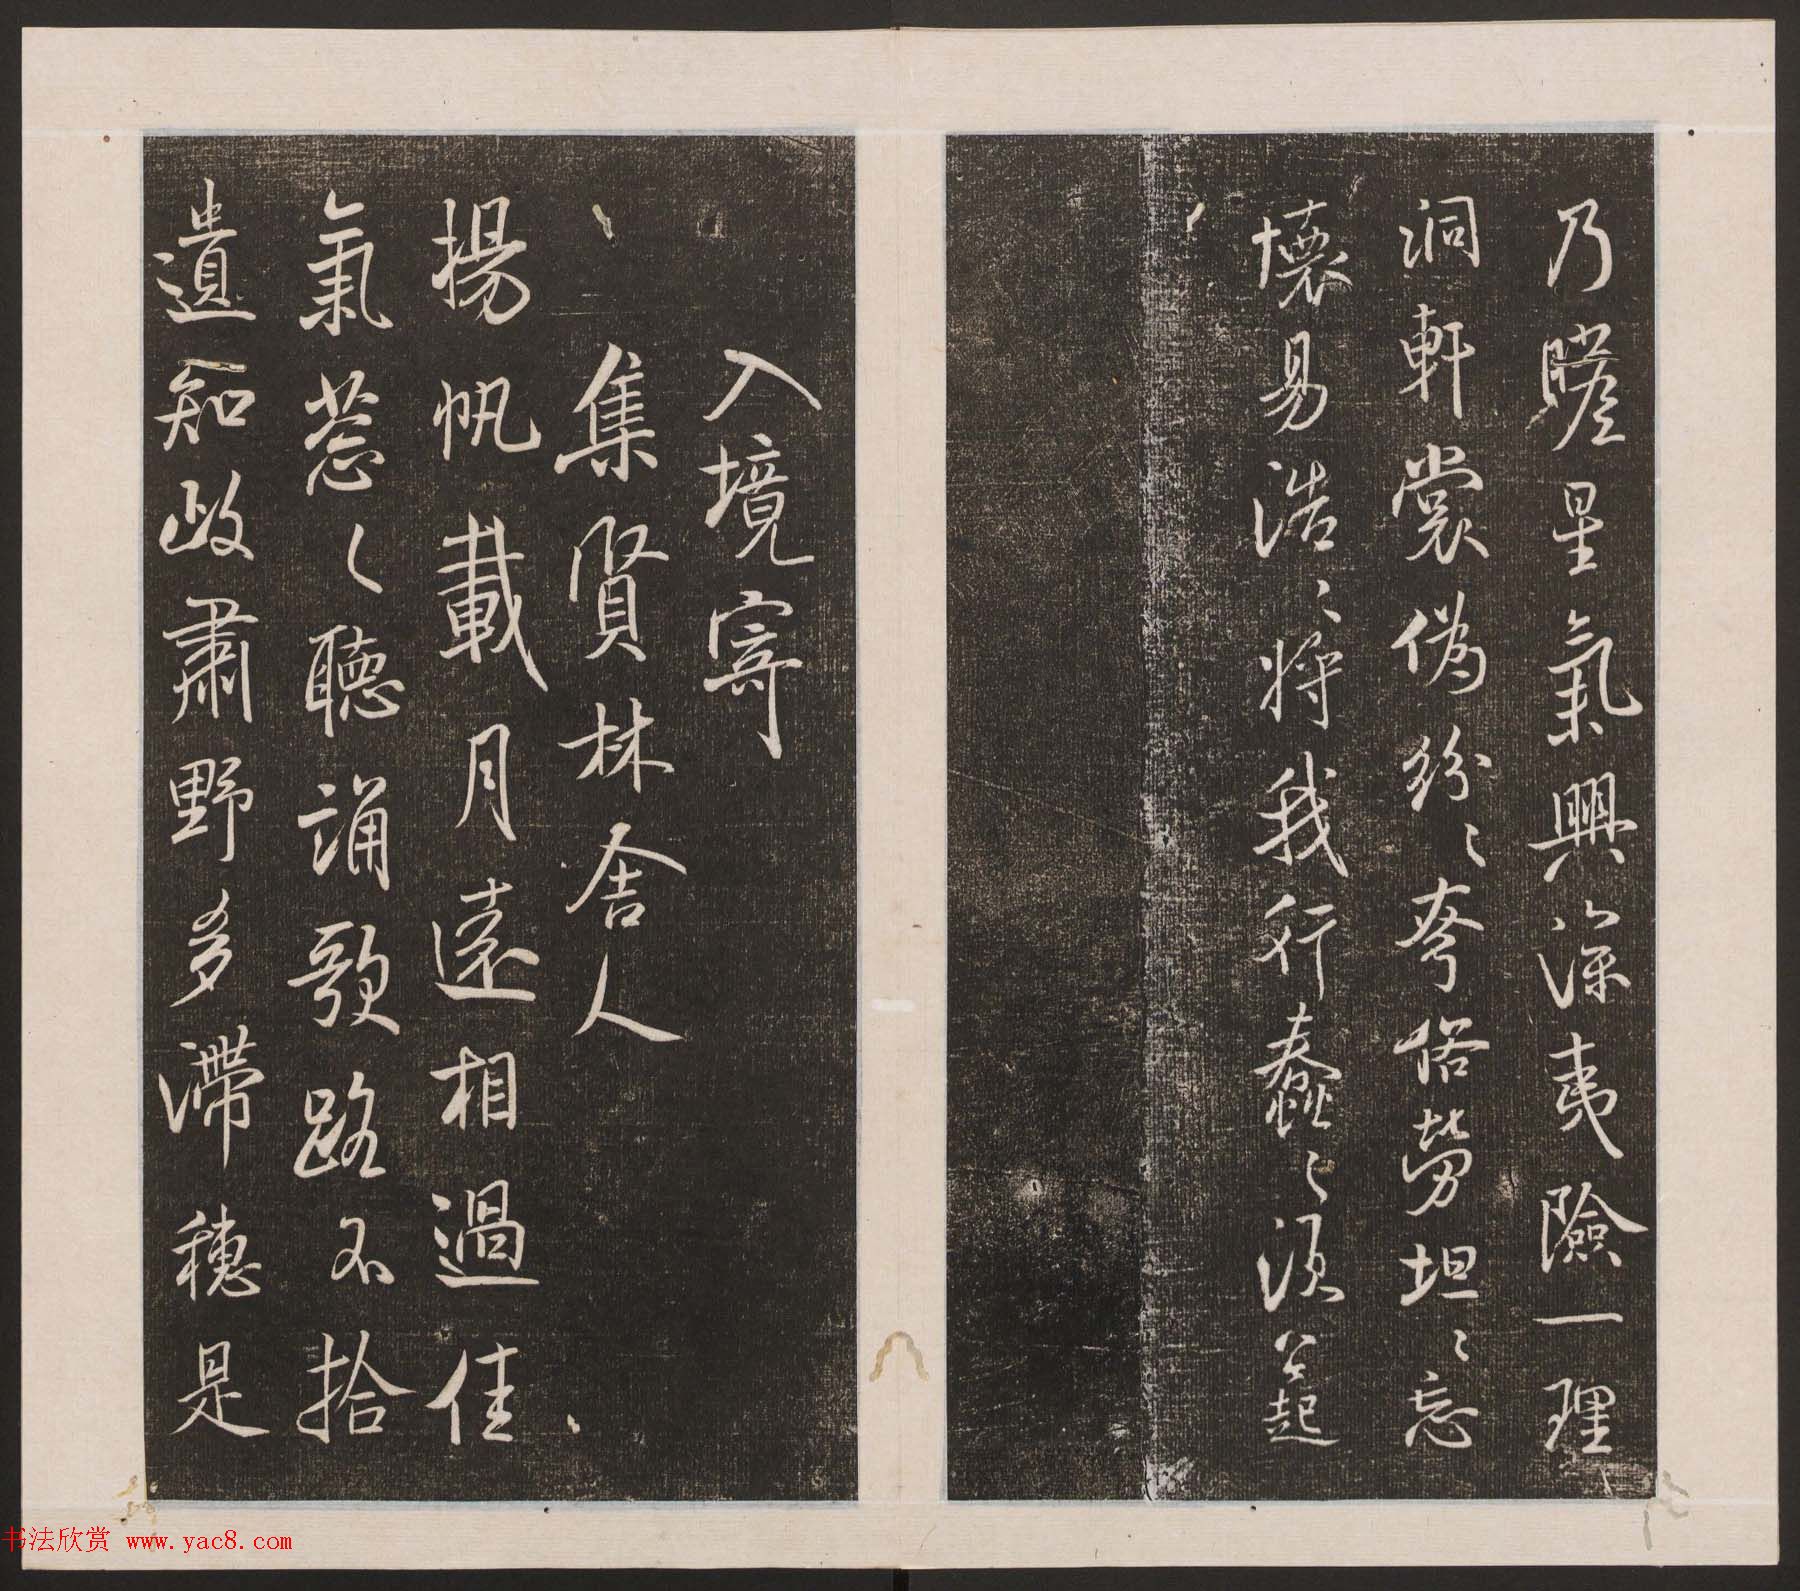 乃瞻星氣興深夷險一理
洞軒裳偽紛〻夸俗勞坦〻忘
懷易浩〻將我行蠢〻須公起
入境寄
集賢林舍人
揚帆載月遠相過佳
氣蔥〻聽誦歌路不拾
遺知政肅野多滯穗是
书法欣赏 www.yac8.com